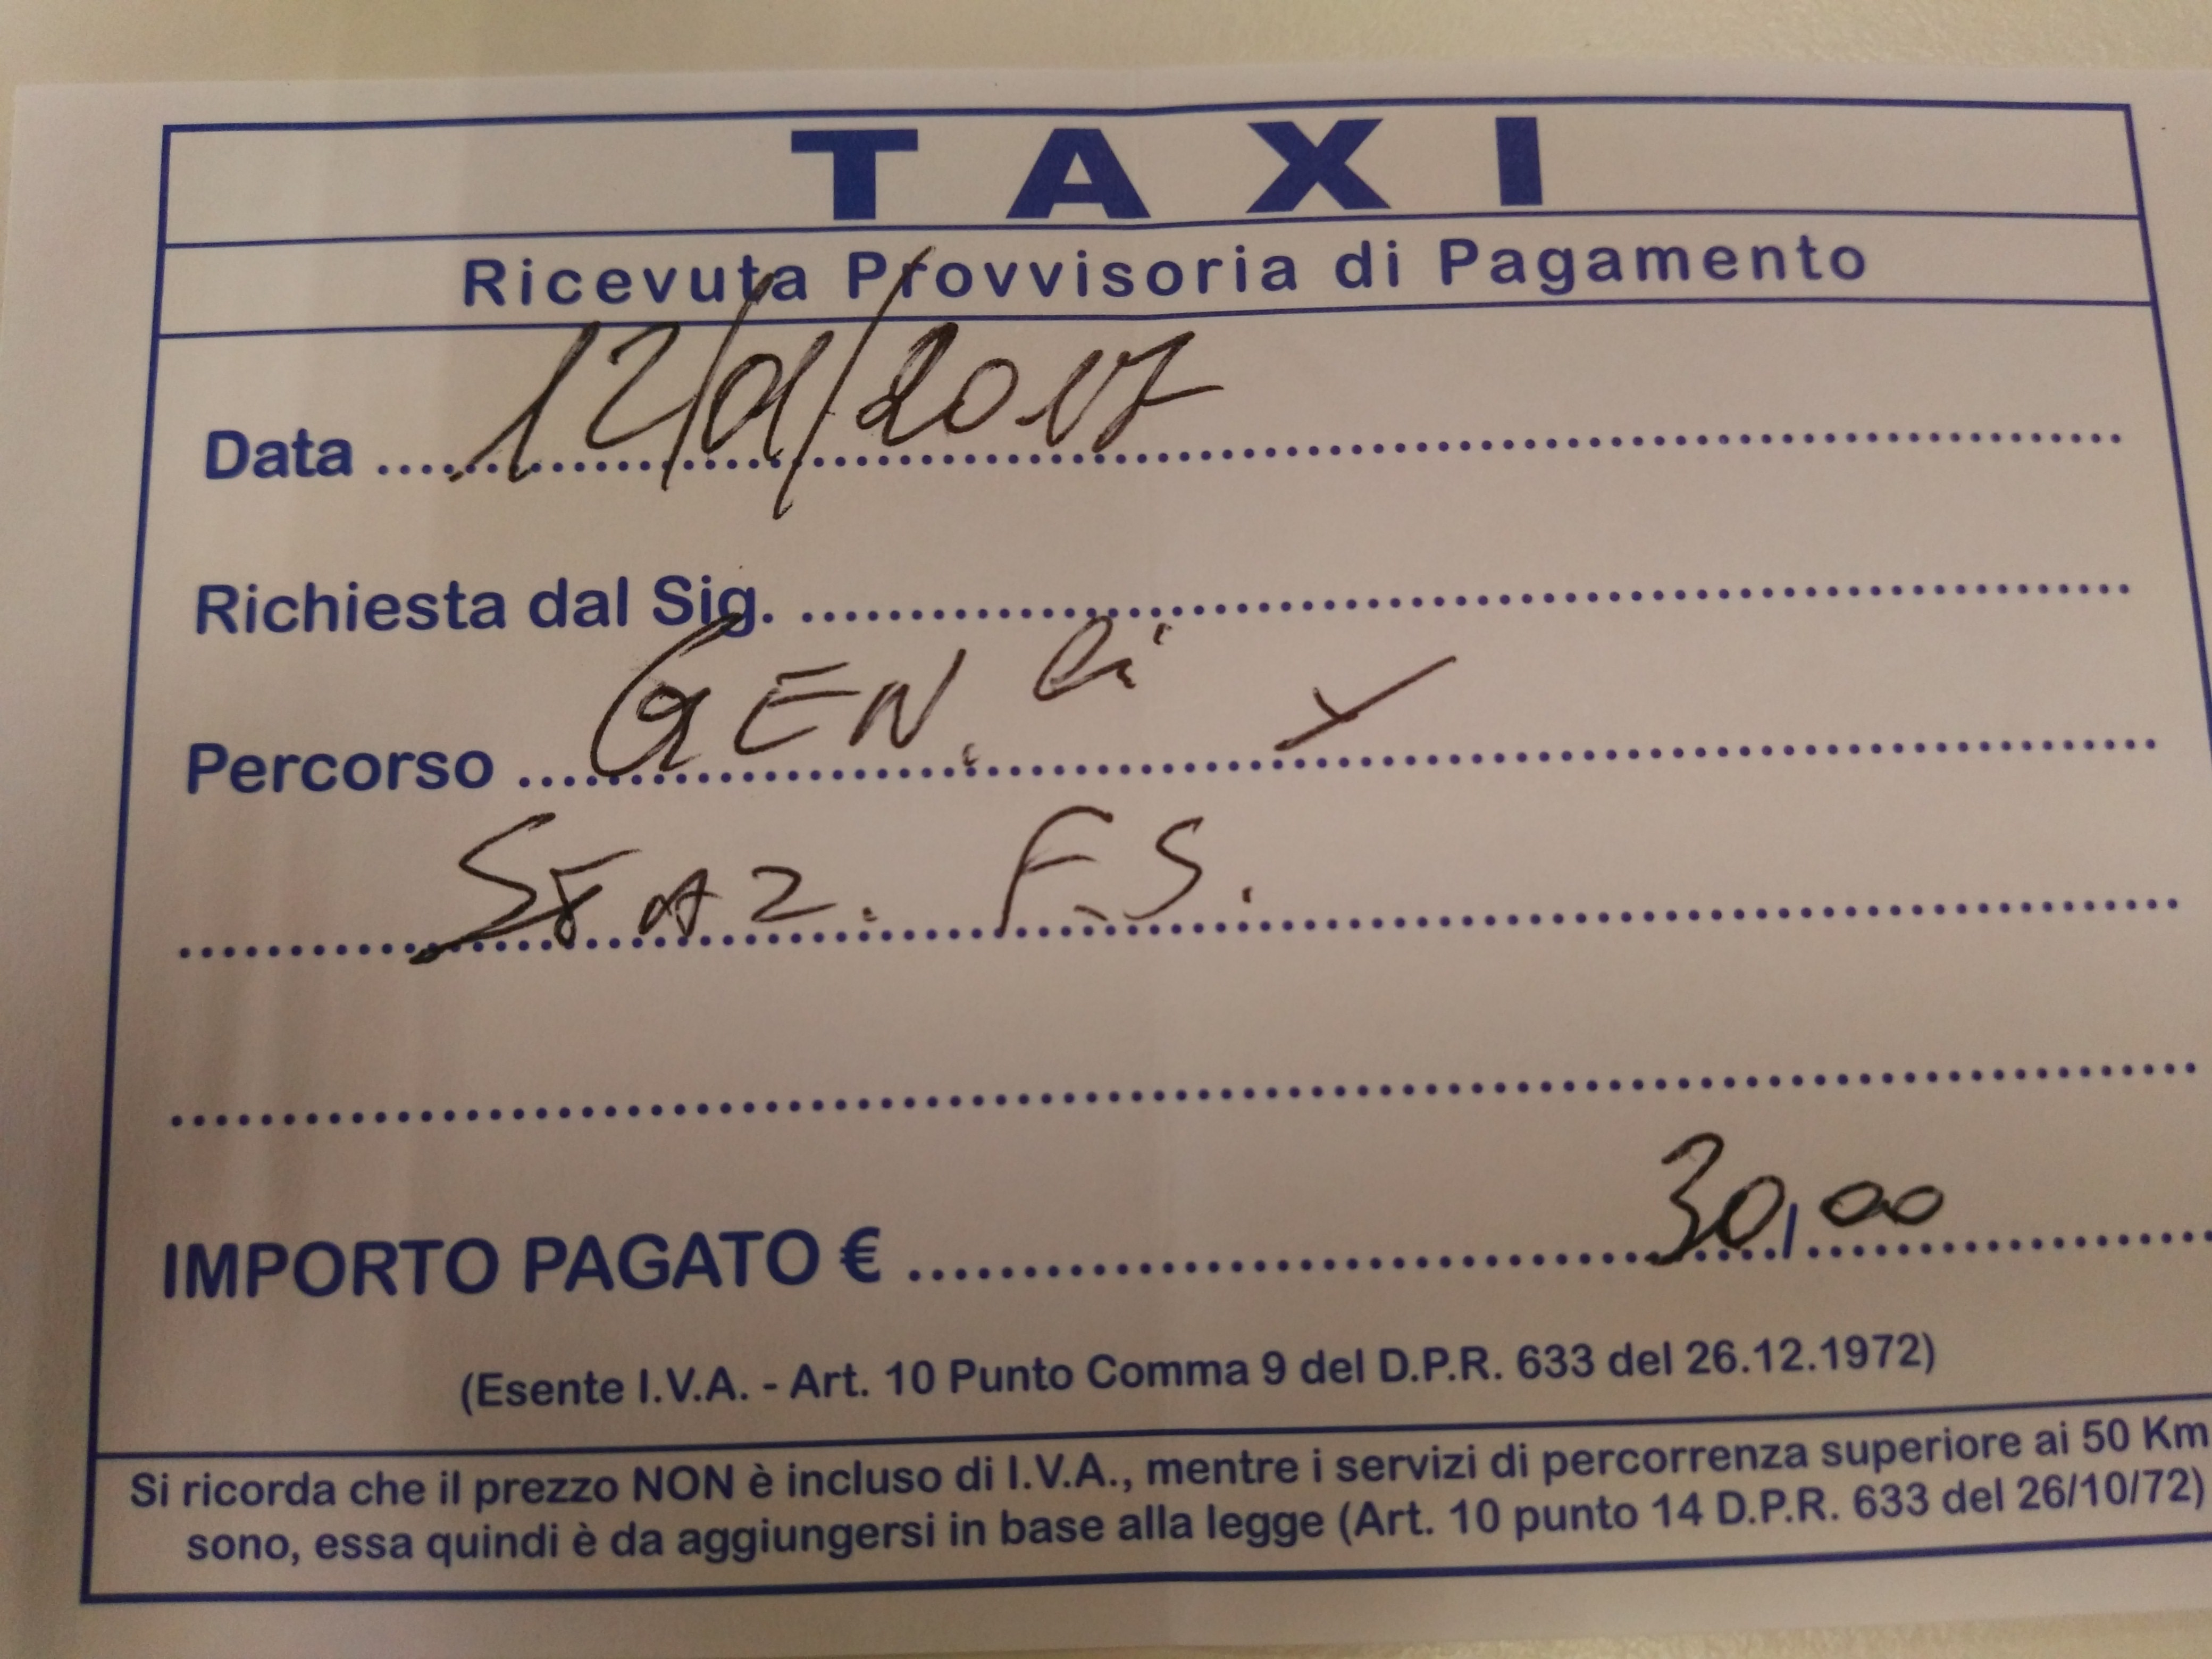 TAXI
Ricevuta Provvisoria di Pagamento
Data 12/01/2017
Richiesta dal Sig.
Percorso GEN. li
STAZ. F.S.
IMPORTO PAGATO € 30,00
(Esente I.V.A. - Art. 10 Punto Comma 9 del D.P.R. 633 del 26.12.1972)
Si ricorda che il prezzo NON è incluso di I.V.A., mentre i servizi di percorrenza superiore ai 50 Km
sono, essa quindi è da aggiungersi in base alla legge (Art. 10 punto 14 D.P.R. 633 del 26/10/72)